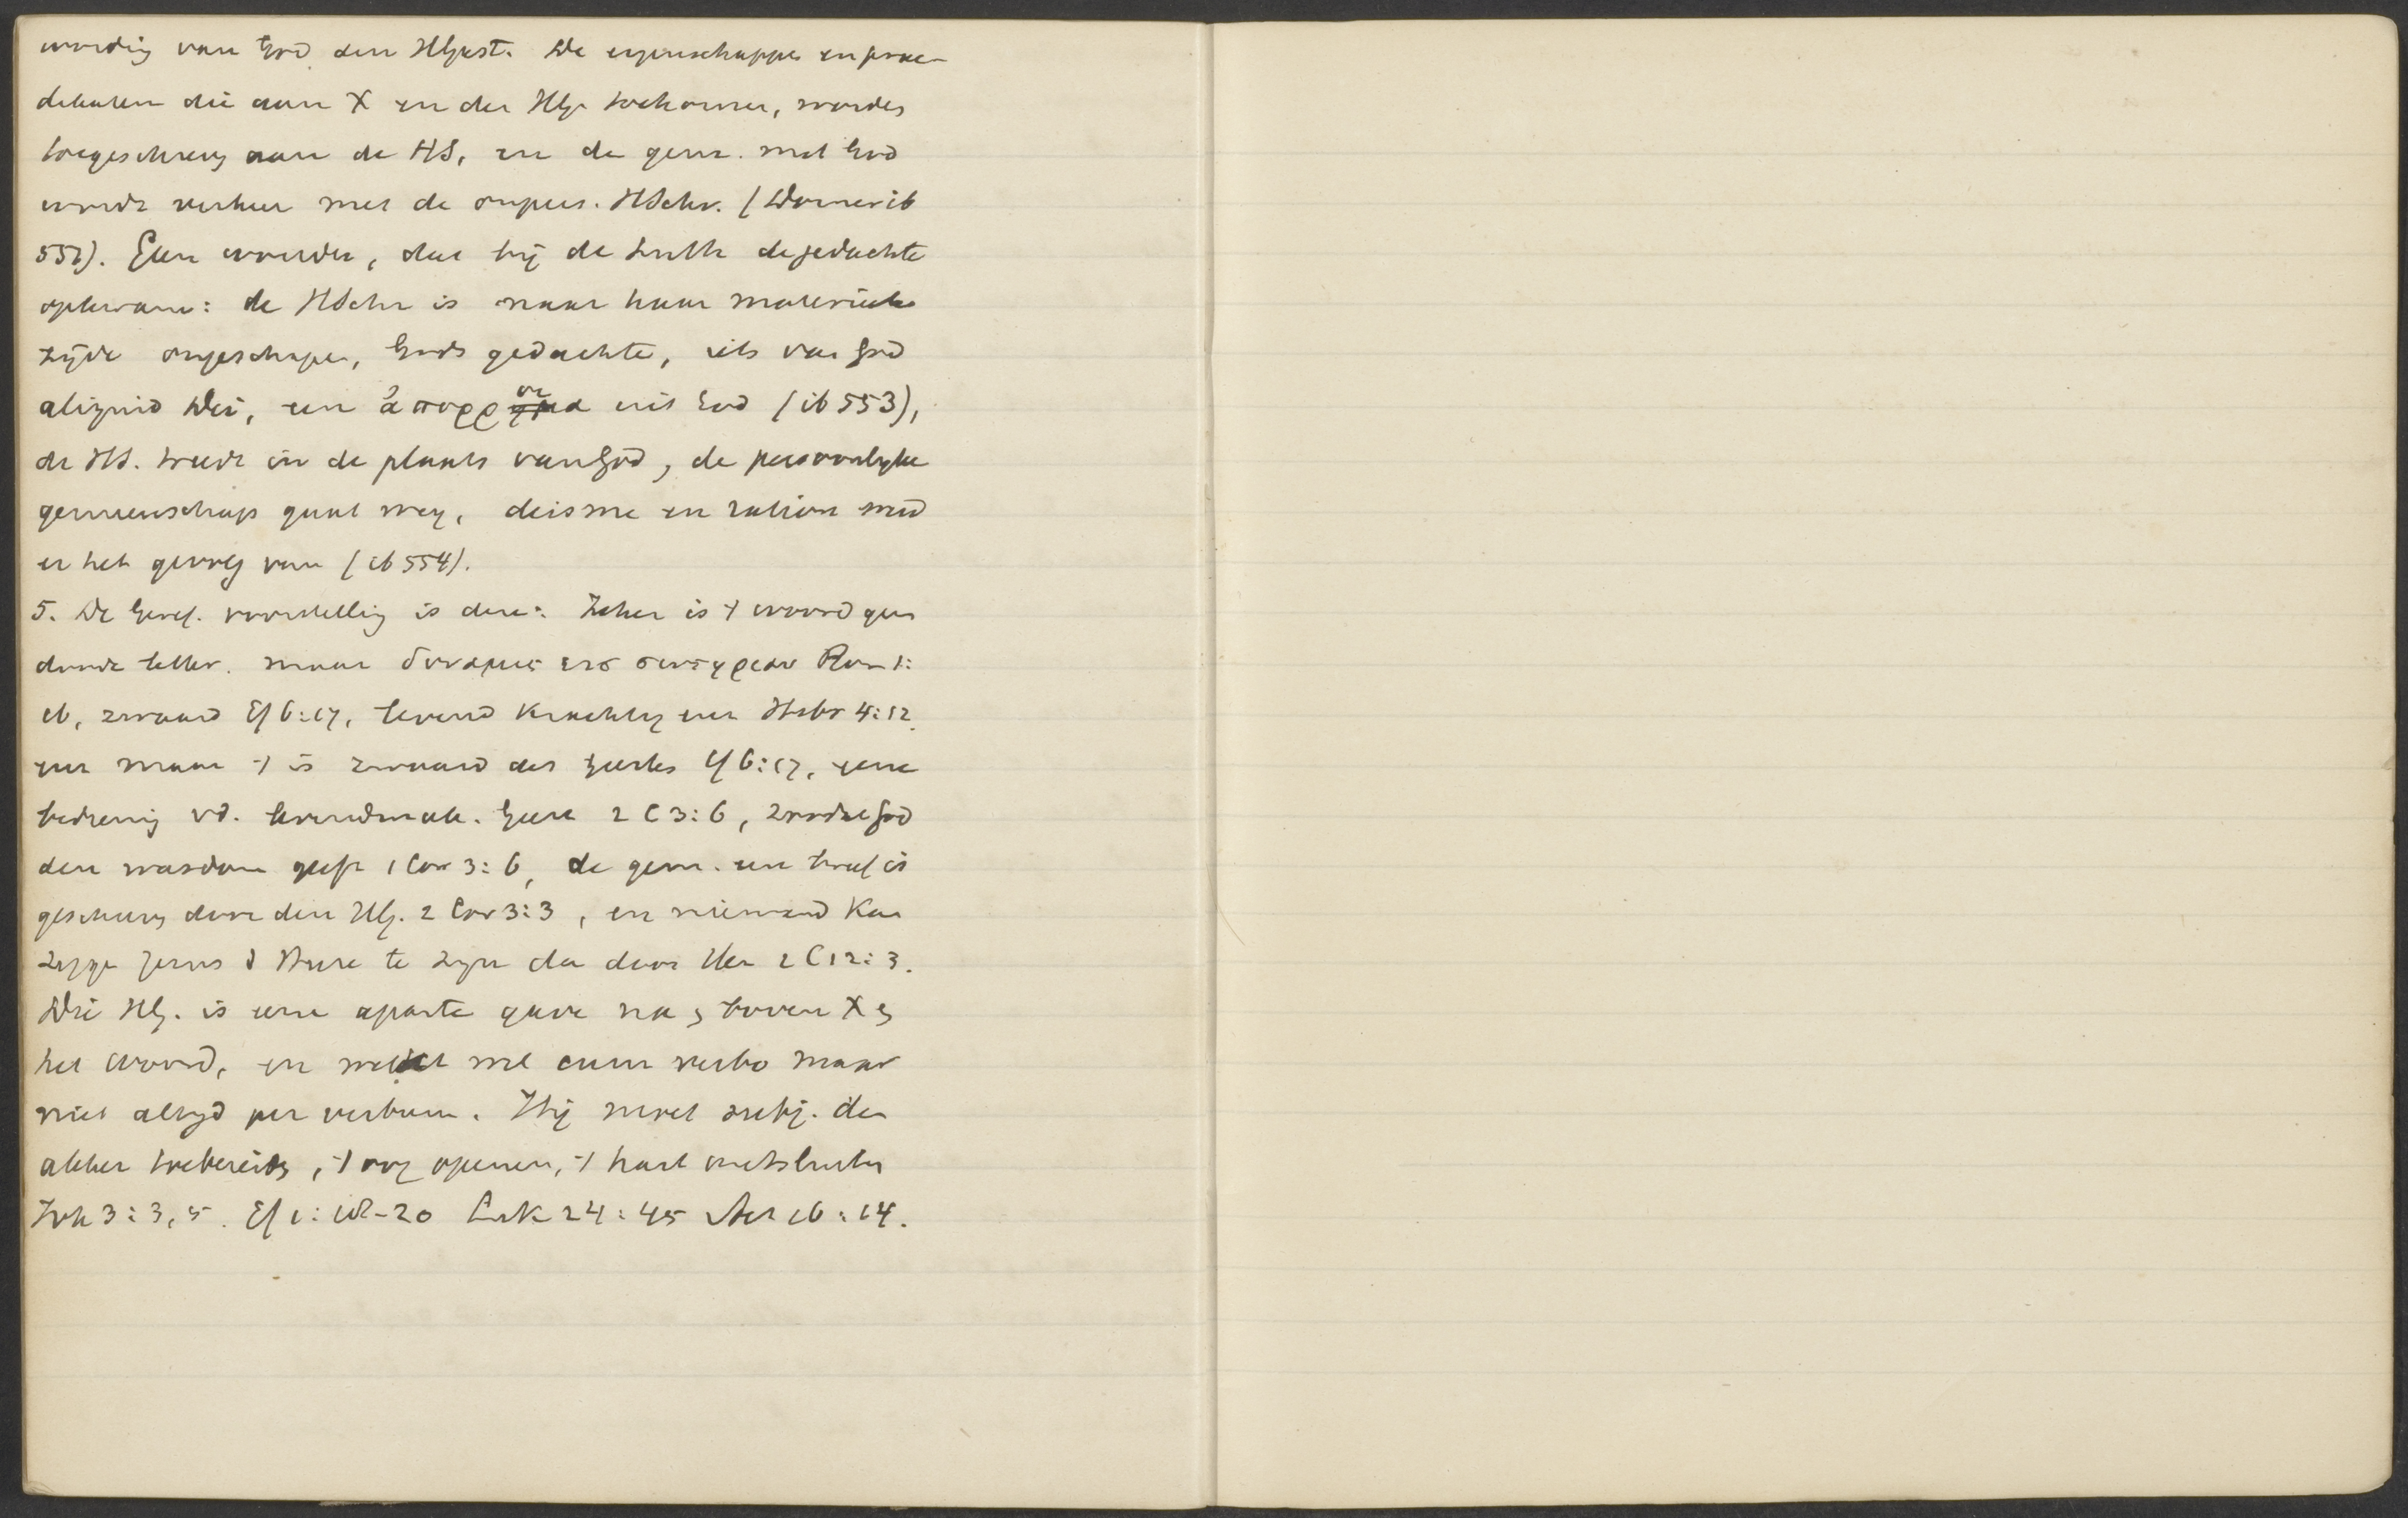 woordig van God den HGeest. De eigenschappen en prae-
dikaten die aan X en den HG. toekomen, worden
toegeschreven aan de HS, en de gem. met God
wordt verhuer met de onpers. HSchr. (Dorner ib
552). Geen wonder, dat bij de Luth de gedachte
opkwam: de HSchr is naar haar materieele
zijde ongeschapen, Gods gedachte, iets van God
aliquid Dei, een ἀπορροια uit God (ib 553),
de HS. treedt in de plaats van God, de persoonlijke
gemeenschap gaat weg, deisme en ration. wierd
er het gevolg van (ib 554).
5. De Geref. voorstelling is deze: Zeker is 't woord geen
doode letter. maar δυναμις εις σωτηριαν Rom 1:
16, zwaard Ef 6:17, levend krachtig enz Hebr 4:12.
enz maar 't is zwaard des Geestes Ef 6:17, eene
bediening vd. levendmak. Geest 2 C 3:6, zoodat God
den wasdom geeft 1 Cor 3:6, de gem. een brief is
geschreven door den HG. 2 Cor 3:3, en niemand kan
zeggen Jezus d Heere te zijn dan door den 2 C 12:3.
Die HG. is eene aparte gave na en boven X en
het woord, en werkt wel cum verbo maar
niet altijd per verbum. Hij moet subj. den
akker toebereiden, 't oog openen, 't hart ontsluiten
Joh 3:3,5. Ef 1:18-20 Luk 24:45 Act 16:14.